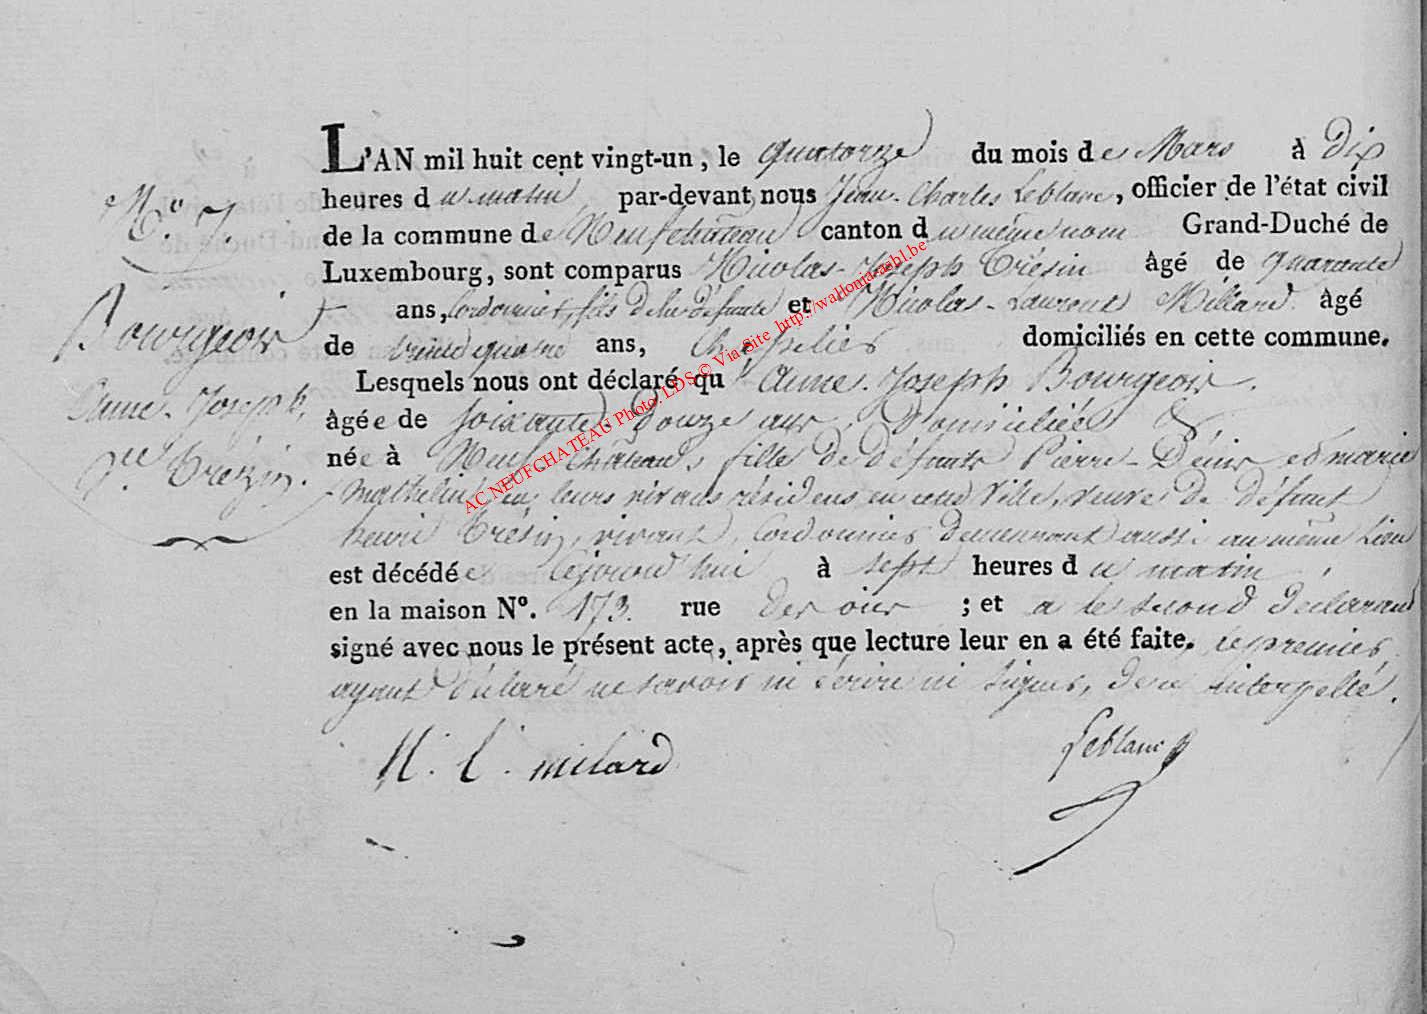 N.° 7.
Bourgeois
Anne-Joseph,
V.e Trésin.
L'AN mil huit cent vingt-un, le quatorze du mois de Mars à dix
heures du matin par-devant nous Jean-Charles Leblanc, officier de l'état civil
de la commune de Neufchateau canton du même nom Grand-Duché de
Luxembourg, sont comparus Nicolas-Joseph Trésin âgé de quarante
ans, Cordonnier, fils de la défunte et Nicolas-Laurent Millard âgé
de trente quatre ans, Chapelier domiciliés en cette commune.
Lesquels nous ont déclaré qu'Anne-Joseph Bourgeois.
âgée de soixante-douze ans, domiciliée &
née à Neuf-Château, fille de défunts Pierre-Denis et marie
leurs vivans résidens en cette Ville, veuve de défunt
henri Trésin, vivant, Cordonnier demeurant aussi au même Lieu
est décédée cejourd'hui à sept heures du matin,
en la maison N°. 173. rue ; et a le second déclarant
signé avec nous le présent acte, après que lecture leur en a été faite. le premier
ayant déclaré ne savoir ni écrire ni signer, de ce interpellé.
N. L. milard
Leblanc
AC NEUFCHATEAU Photo. LDS © Via Site http://wallonia-asbl.be